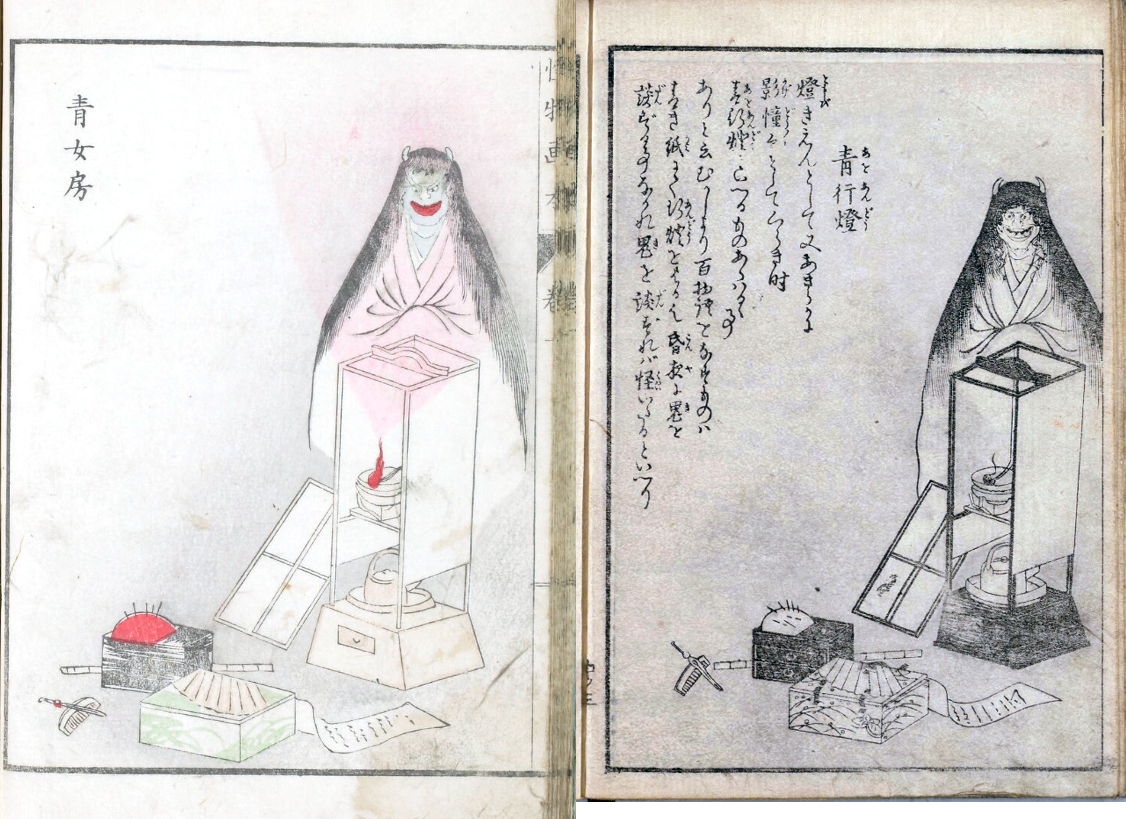 青女房
怪物画本 巻一
青行燈
燈きえんとして又あきらかに
影憧々としてくらき時
青行燈といへるものあらはるゝ事
ありと云むかしより百物語をなすものハ
青き紙にて行燈をはる也昏夜に鬼を
談ずる事なかれ鬼を談ずれバ怪いたるといへり